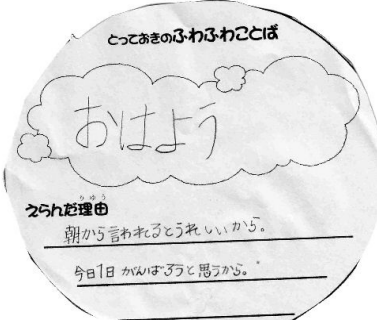 とっておきのふわふわことば
おはよう
えらんだ理由
りゆう
朝から言われるとうれしいから。
今日1日 がんばろうと思うから。